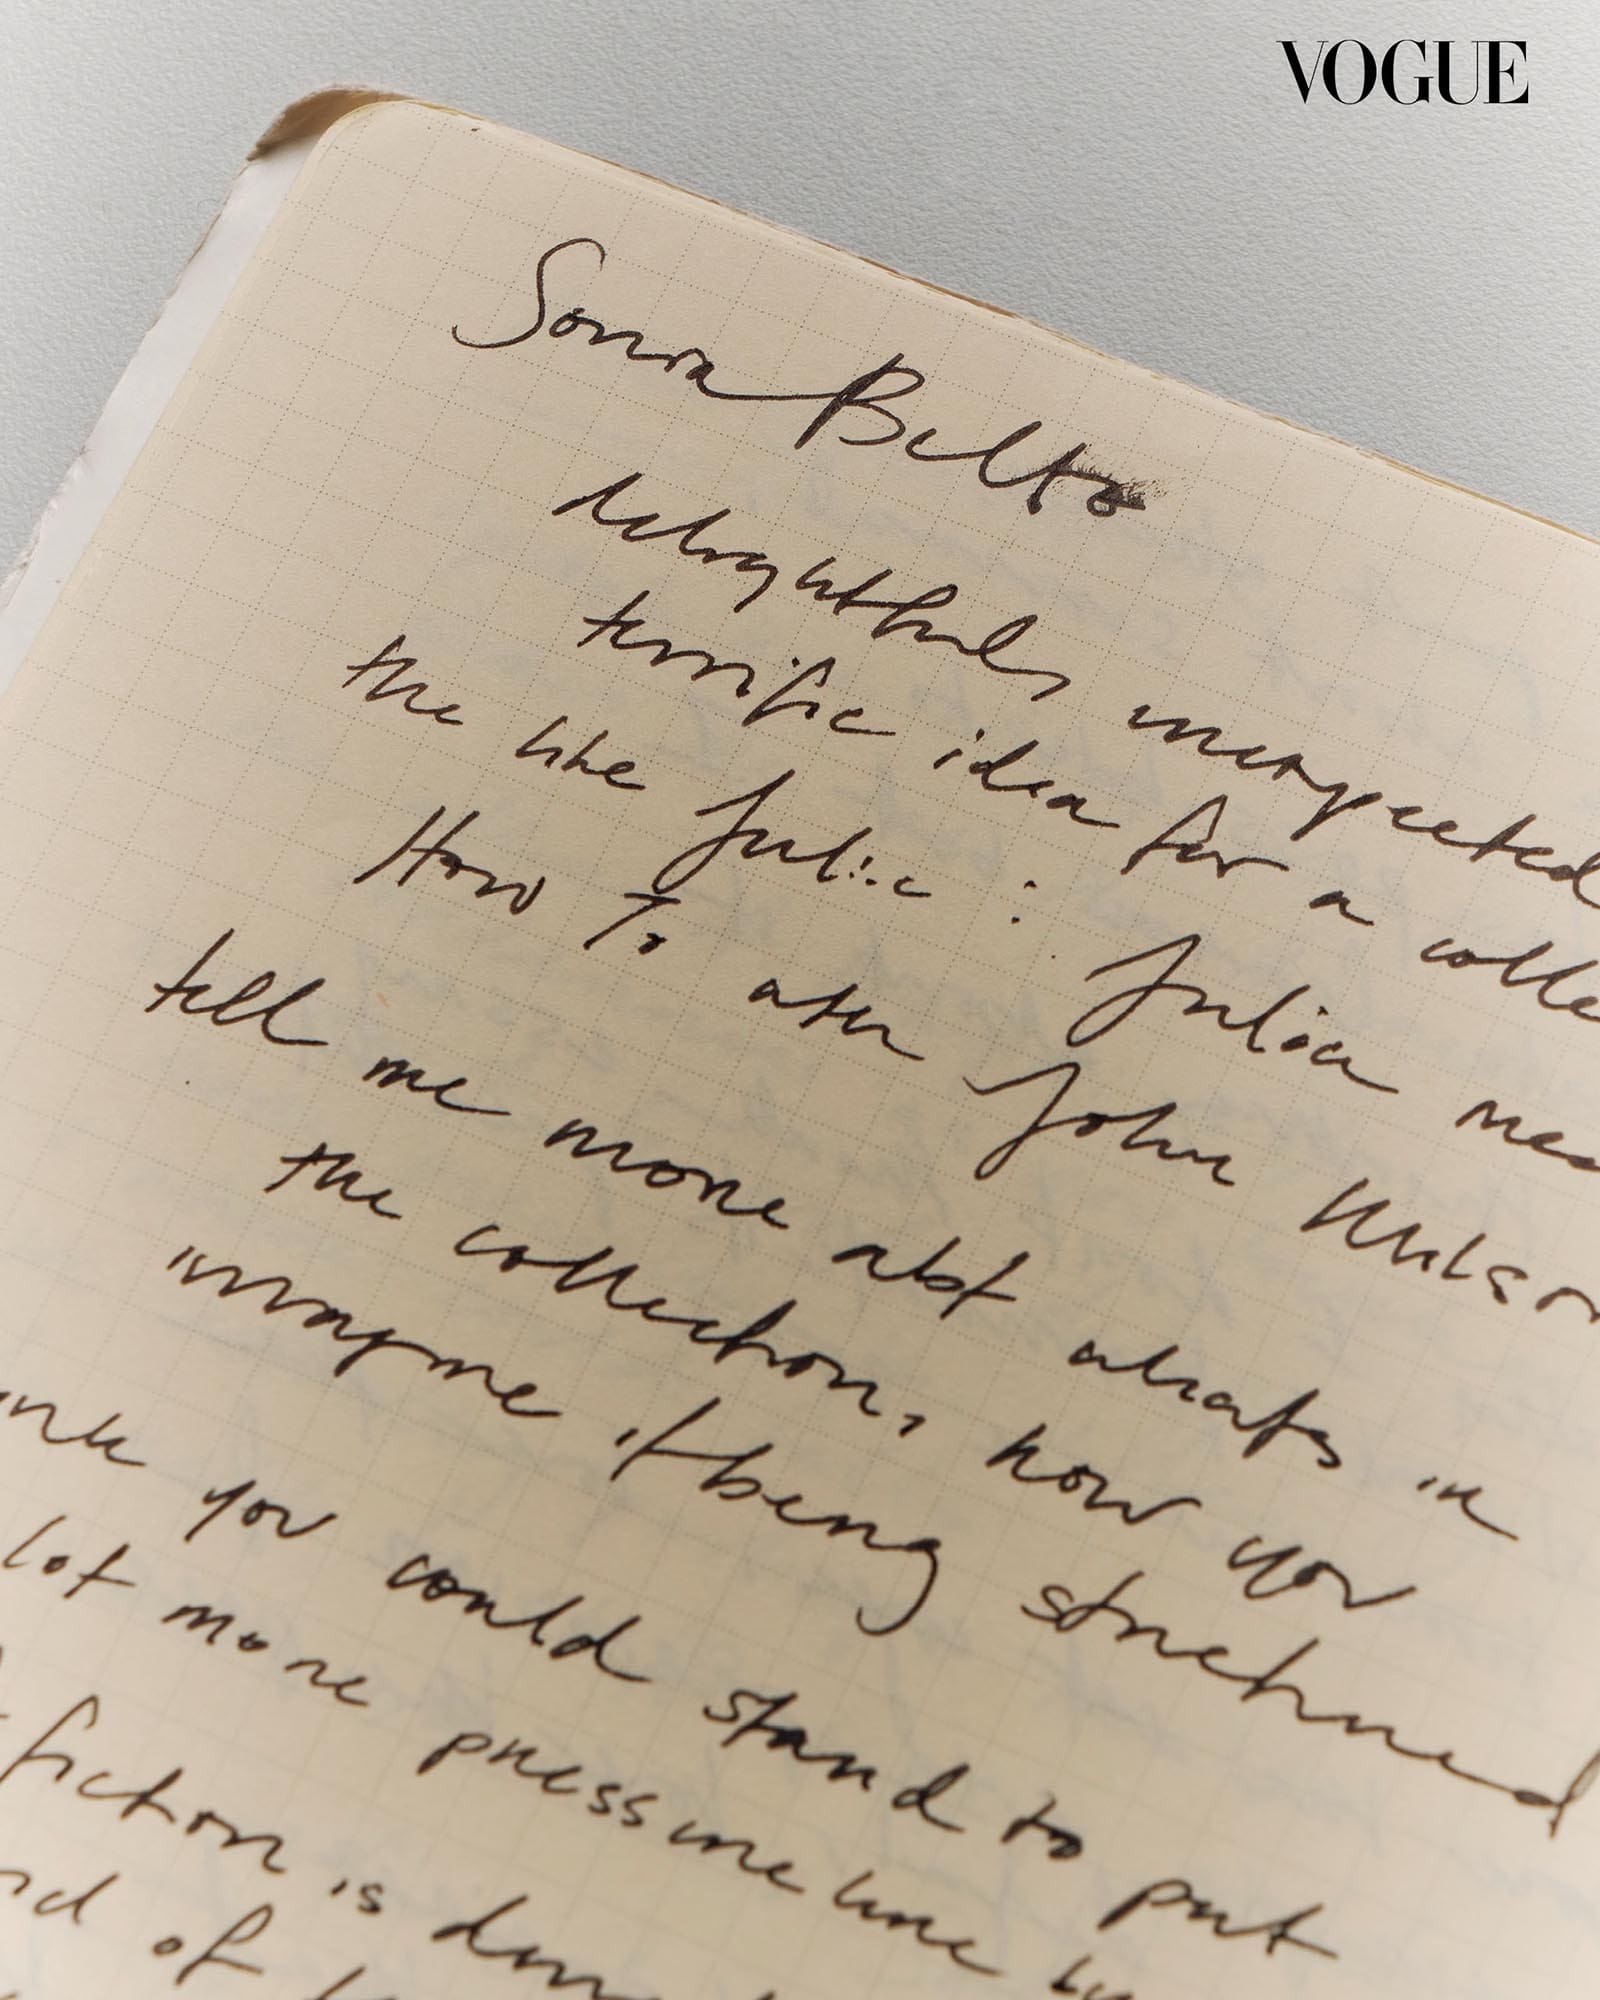 VOGUE
Sonia Belto
delightful, unexpected
terrific idea for a colle
the like Julie : Julia mea
How To after John Wilson
tell me more abt what's in
the collection, how you
imagine it being structured
you could stand to put
lot more pressure here
fiction is
of